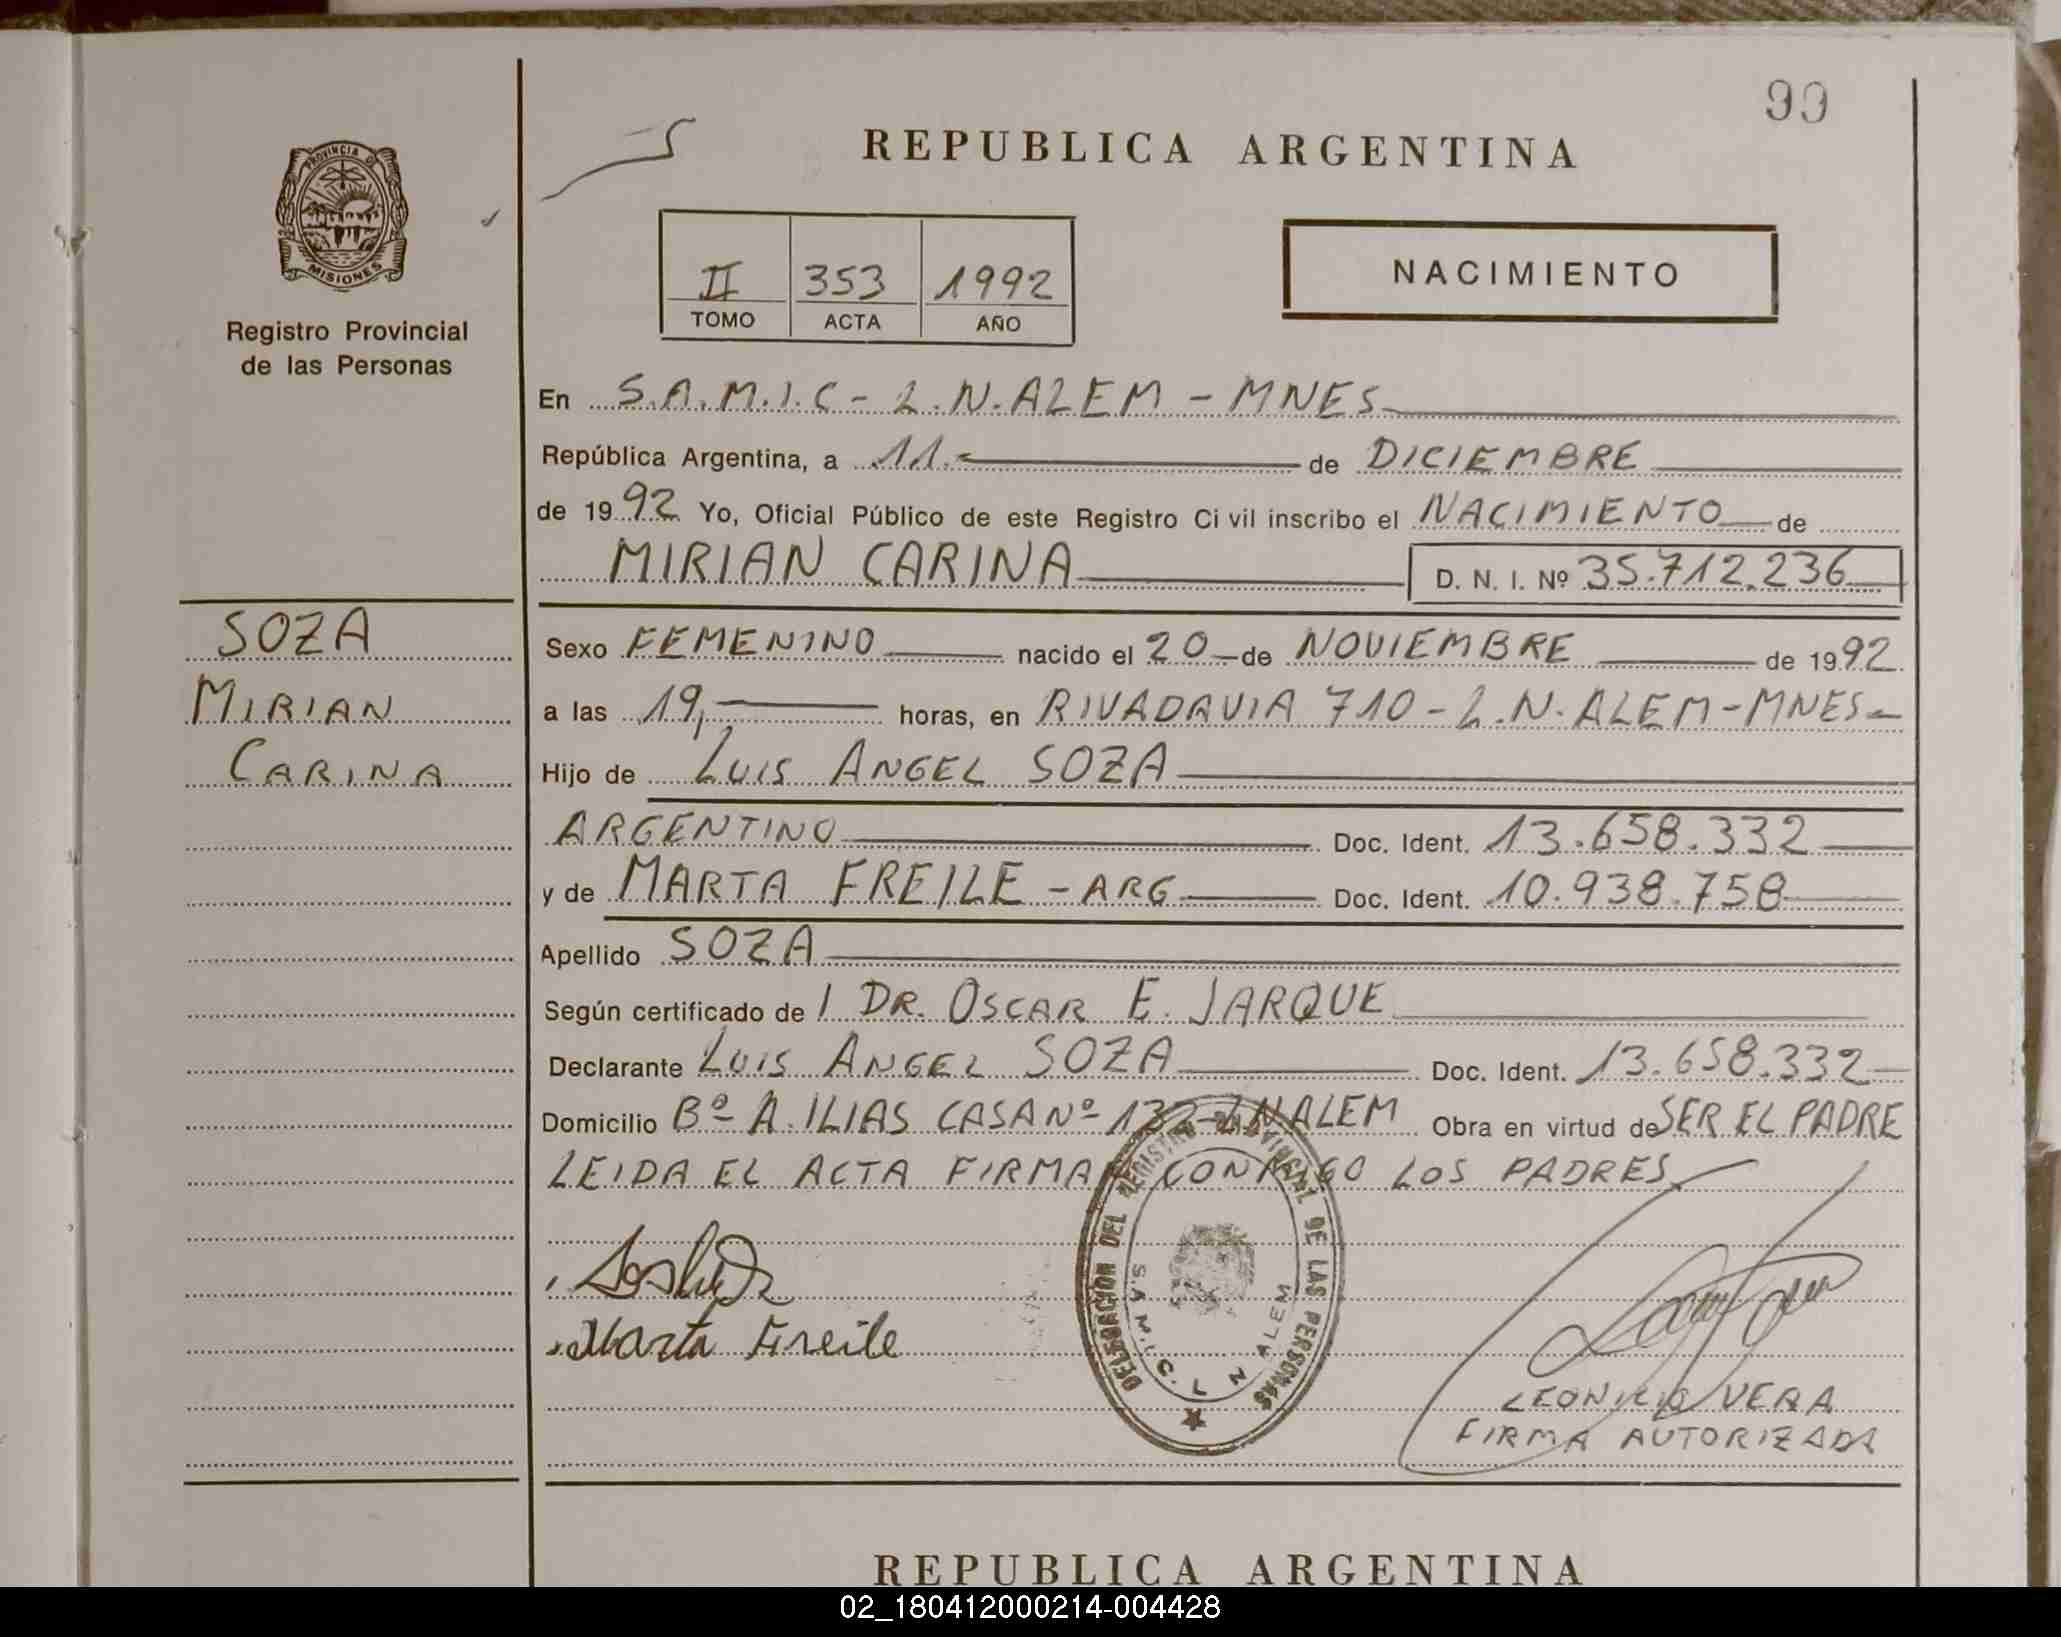 99
REPUBLICA ARGENTINA
PROVINCIA DE
MISIONES
Registro Provincial
de las Personas
II 353 1992
TOMO ACTA AÑO
NACIMIENTO
En S.A.M.I.C - L.N.ALEM - MNES
República Argentina, a 11.- de DICIEMBRE
de 1992 Yo, Oficial Público de este Registro Civil inscribo el NACIMIENTO de
MIRIAN CARINA D. N. I. Nº 35.712.236
SOZA
MIRIAN
CARINA
Sexo FEMENINO nacido el 20 de NOVIEMBRE de 1992
a las 19, horas, en RIVADAVIA 710 - L.N.ALEM - MNES-
Hijo de LUIS ANGEL SOZA
ARGENTINO Doc. Ident. 13.658.332
y de MARTA FREILE - ARG Doc. Ident. 10.938.758
Apellido SOZA
Según certificado de l DR. OSCAR E. JARQUE
Declarante LUIS ANGEL SOZA Doc. Ident. 13.658.332
Domicilio Bº A. ILIAS CASA Nº 132-LNALEM Obra en virtud de SER EL PADRE
LEIDA EL ACTA FIRMAN CONMIGO LOS PADRES
Marta Freile
DELEGACION DEL REGISTRO PROVINCIAL DE LAS PERSONAS
S.A.M.I.C. L N ALEM
VERA
FIRMA AUTORIZADA
REPUBLICA ARGENTINA
02_180412000214-004428